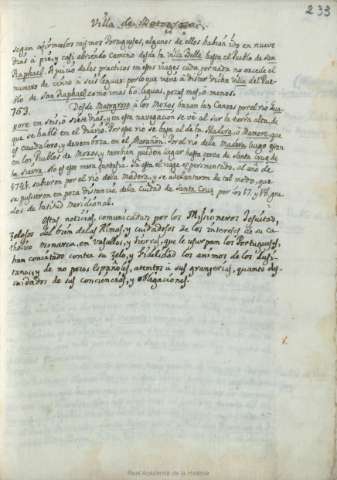 233
Villa de Matogroso.
segun afirman los mismos Portugueses, algunos de ellos habian ido en nueve
dias a pie, y casi abriendo camino desde la Villa Bella hasta el Pueblo de San
Raphael. A juicio de los practicos en esos viages cada jornada no excede el
numero de cinco a seis leguas: por lo que vendrá a distar dicha Villa del Pue-
blo de San Raphael como unas 50 leguas, pocas mas, o menos.
763. Desde Matogroso a los Moxos baxan las Canoas por el rio
pore en seis o siete dias, y en esta navegacion se vé al sur la sierra alta, de
que se habló en el Diario. Por este rio se baja al de la Madera, o Mamore, que
es caudaloso, y desemboca en el Marañon. Por el rio de la Madera luego estan
en los Pueblos de Moxos, y tambien pueden llegar hasta cerca de Santa Cruz de
la Sierra. No es esta mera sospecha. Ya esta el viage experimentado, el año de
1743 subieron por el rio de la Madera, y se adelantaron de tal suerte, que
se pusieron en poca distancia de la Ciudad de Santa Cruz por los 17. y 18. gra-
dos de latitud Meridional.
Estas noticias, comunicadas por los Missioneros Jesuitas,
zelosos del bien de las Almas, y cuidadosos de los intereses de su Ca-
tholico monarca, en vasallos, y tierras, que le usurpan los Portugueses,
han concitado contra su zelo, y fidelidad los animos de los Lusi-
tanos, y de no pocos Españoles, atentos a sus grangerias, quanto des-
cuidados de sus conciencias, y obligaciones.
Real Academia de la Historia